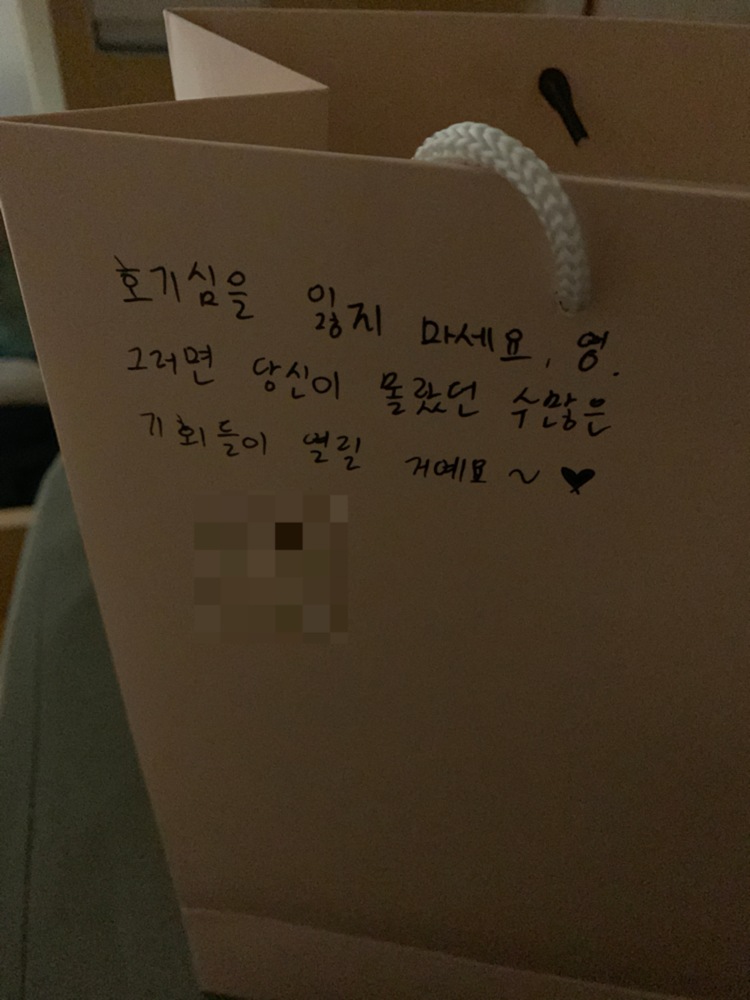 호기심을 잃지 마세요, 영.
그러면 당신이 몰랐던 수많은
기회들이 열릴 거예요 ~ ♥